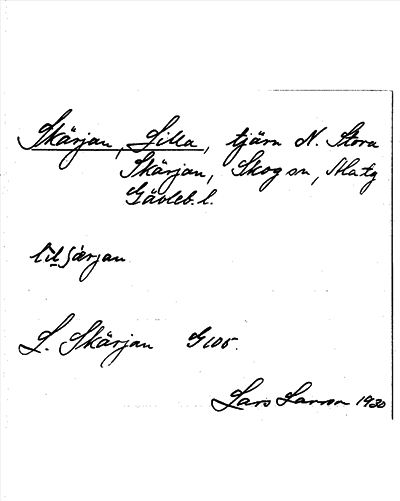 Skärjan, Lilla, tjärn N. Stora
Skärjan, Skog sn, Ala tg
Gävleb. l.
L. Skärjan G105.
Lars Larson 1930